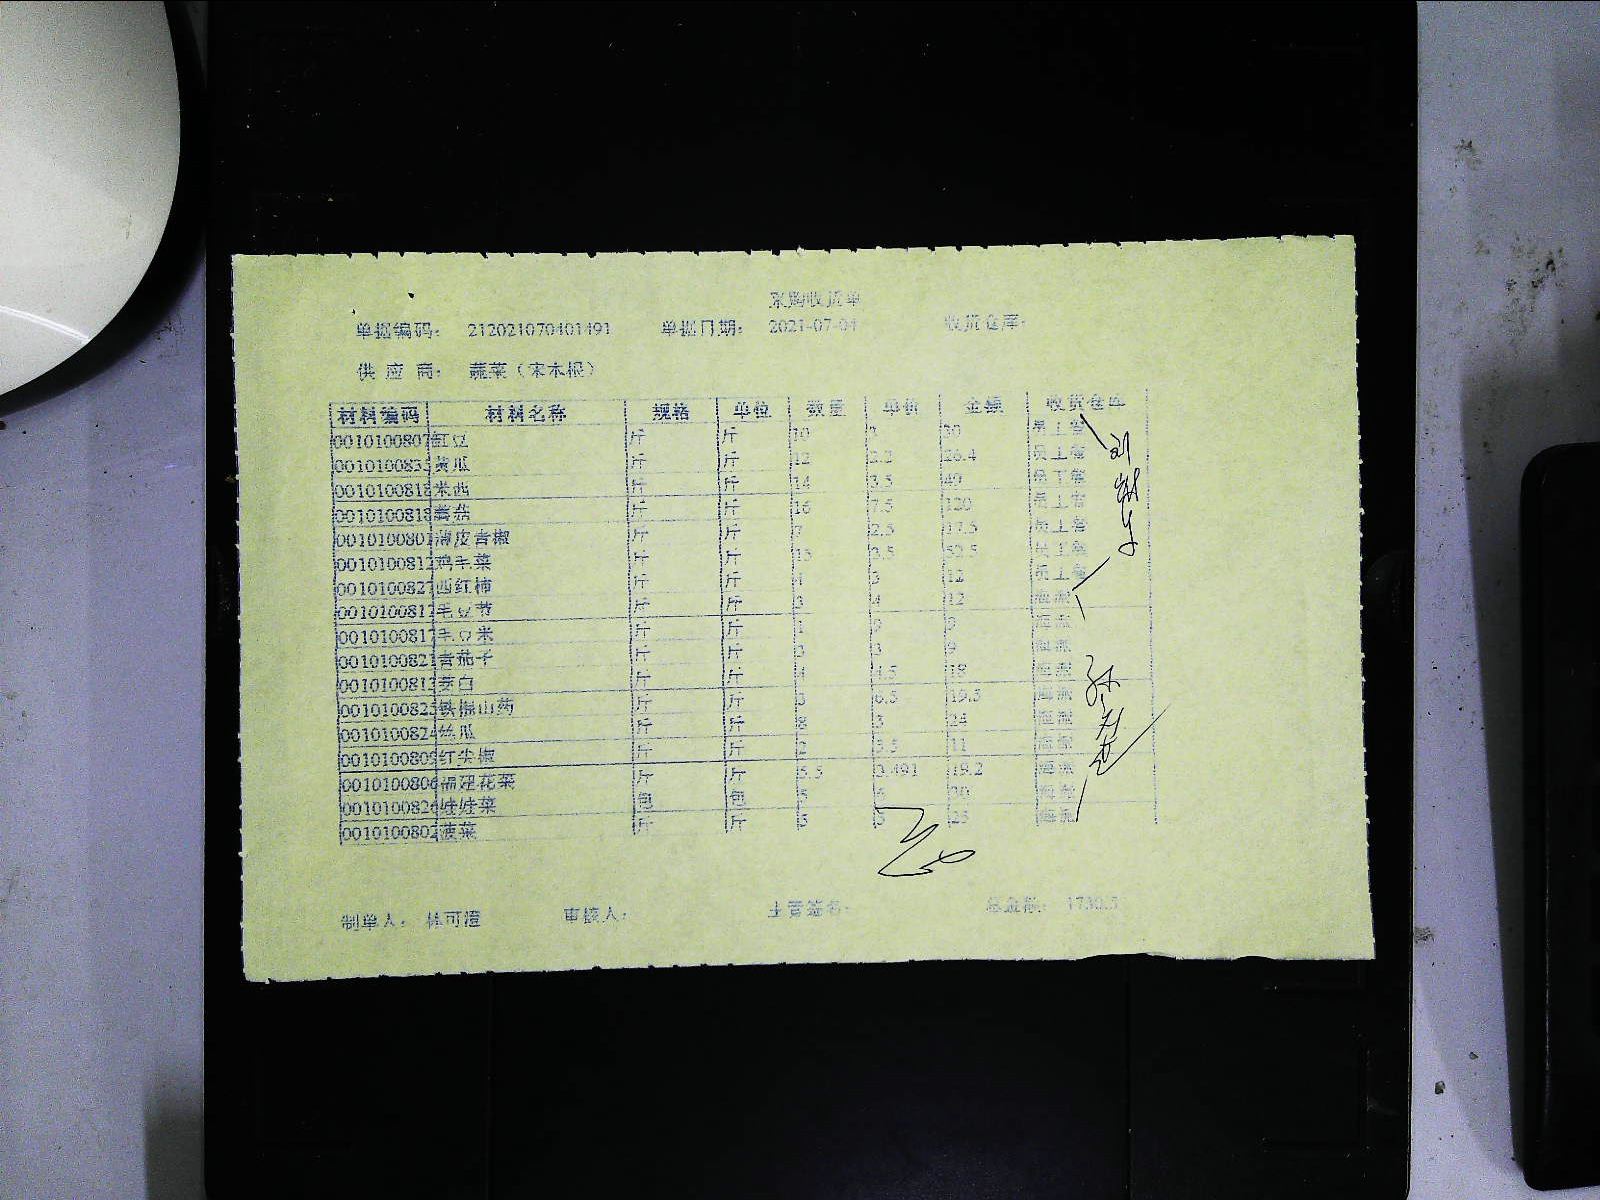 采购收货单
单据编码： 212021070401491 单据日期： 2021-07-04 收货仓库：
供 应 商： 蔬菜（宋木根）
材料编码 材料名称 规格 单位 数量 单价 金额 收货仓库
0010100807 豇豆 斤 斤 10 3 30 员工餐
001010083 黄瓜 斤 斤 12 2.2 26.4 员工餐
0010100818 米西 斤 斤 14 3.5 49 员工餐
0010100818 蘑菇 斤 斤 16 7.5 120 员工餐
001010080 薄皮青椒 斤 斤 7 2.5 17.5 员工餐
001010081 鸡毛菜 斤 斤 15 3.5 52.5 员工餐
001010082 西红柿 斤 斤 4 3 12 员工餐
001010081 毛豆节 斤 斤 3 4 12 海派
001010081 毛豆米 斤 斤 1 9 9 海派
001010082 青茄子 斤 斤 3 3 9 海派
001010081 茭白 斤 斤 4 4.5 18 海派
001010082 铁棍山药 斤 斤 3 6.5 19.5 海派
001010082 丝瓜 斤 斤 8 3 24 海派
001010080 红尖椒 斤 斤 2 5.5 11 海派
001010080 福建花菜 斤 斤 5.5 3.491 19.2 海派
001010082 娃娃菜 包 包 5 6 30 海派
001010080 菠菜 斤 斤 5 5 25 海派
制单人： 林可澄 审核人： 主管签名： 总金额： 1730.5